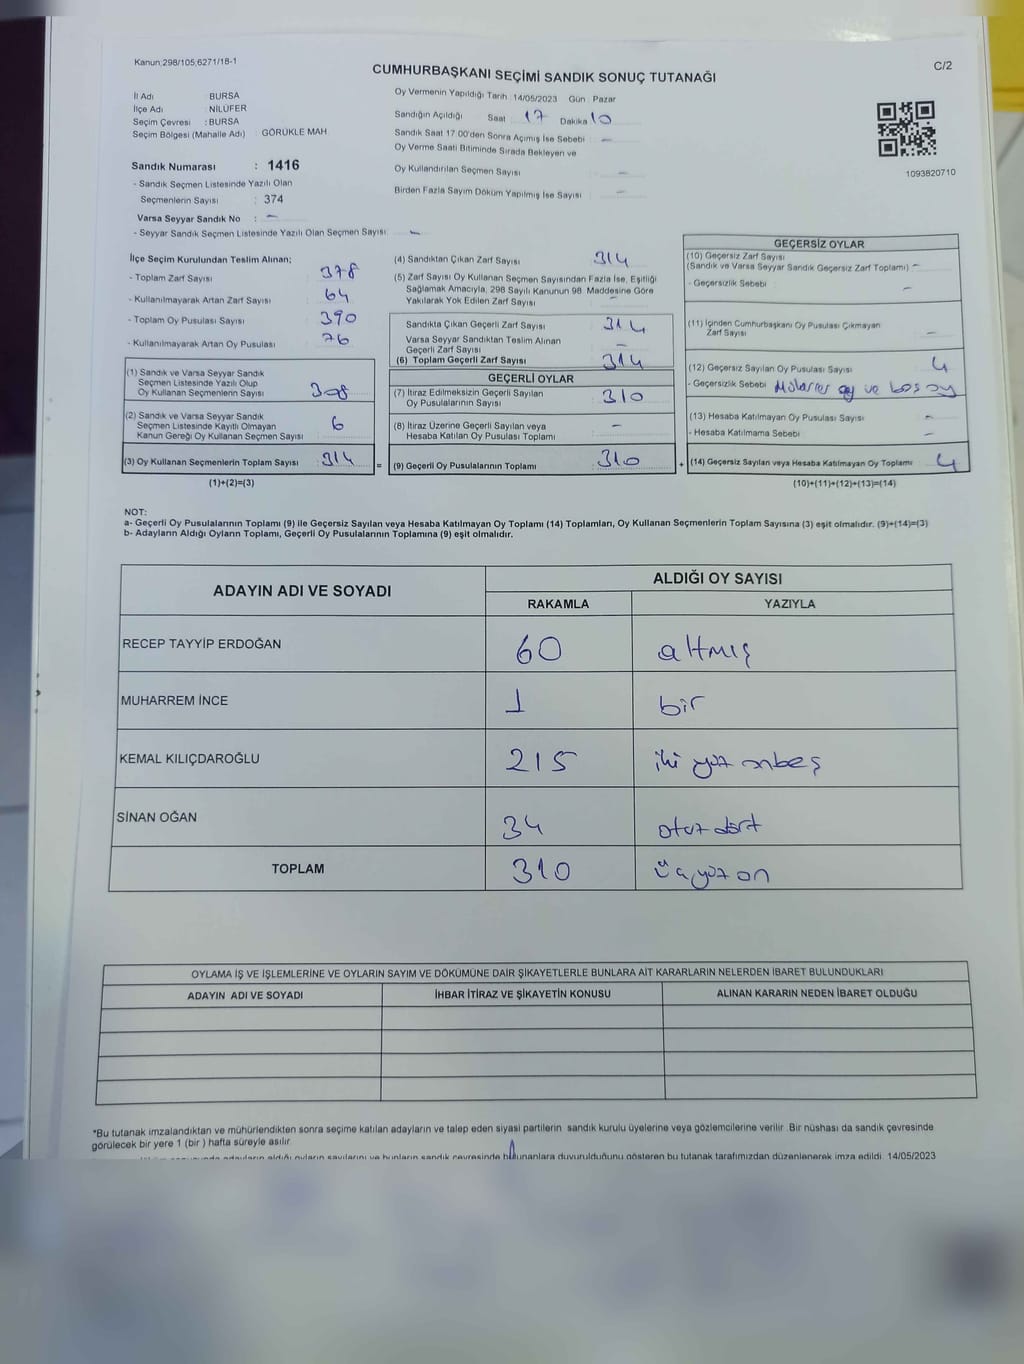 Kanun:298/105;6271/18-1
C/2
CUMHURBAŞKANI SEÇİMİ SANDIK SONUÇ TUTANAĞI
İl Adı : BURSA
İlçe Adı : NİLÜFER
Seçim Çevresi : BURSA
Seçim Bölgesi (Mahalle Adı) : GÖRÜKLE MAH
Oy Vermenin Yapıldığı Tarih 14/05/2023 Gün Pazar
Sandığın Açıldığı Saat 17 Dakika 10
Sandık Saat 17:00'den Sonra Açımış İse Sebebi : —
Oy Verme Saati Bitiminde Sırada Bekleyen ve
Oy Kullandırılan Seçmen Sayısı : —
Birden Fazla Sayım Döküm Yapılmış İse Sayısı : —
1093820710
Sandık Numarası : 1416
- Sandık Seçmen Listesinde Yazılı Olan
Seçmenlerin Sayısı : 374
Varsa Seyyar Sandık No : —
- Seyyar Sandık Seçmen Listesinde Yazılı Olan Seçmen Sayısı: —
İlçe Seçim Kurulundan Teslim Alınan;
- Toplam Zarf Sayısı : 378
- Kullanılmayarak Artan Zarf Sayısı : 64
- Toplam Oy Pusulası Sayısı : 390
- Kullanılmayarak Artan Oy Pusulası : 76
(1) Sandık ve Varsa Seyyar Sandık
Seçmen Listesinde Yazılı Olup
Oy Kullanan Seçmenlerin Sayısı : 308
(2) Sandık ve Varsa Seyyar Sandık
Seçmen Listesinde Kayıtlı Olmayan
Kanun Gereği Oy Kullanan Seçmen Sayısı : 6
(3) Oy Kullanan Seçmenlerin Toplam Sayısı : 314 =
(1)+(2)=(3)
(4) Sandıktan Çıkan Zarf Sayısı : 314
(5) Zarf Sayısı Oy Kullanan Seçmen Sayısından Fazla İse, Eşitliği
Sağlamak Amacıyla, 298 Sayılı Kanunun 98. Maddesine Göre
Yakılarak Yok Edilen Zarf Sayısı : —
Sandıkta Çıkan Geçerli Zarf Sayısı : 314
Varsa Seyyar Sandıktan Teslim Alınan
Geçerli Zarf Sayısı : —
(6) Toplam Geçerli Zarf Sayısı : 314
GEÇERLİ OYLAR
(7) İtiraz Edilmeksizin Geçerli Sayılan
Oy Pusulalarının Sayısı : 310
(8) İtiraz Üzerine Geçerli Sayılan veya
Hesaba Katılan Oy Pusulası Toplamı : —
(9) Geçerli Oy Pusulalarının Toplamı : 310 +
GEÇERSİZ OYLAR
(10) Geçersiz Zarf Sayısı
(Sandık ve Varsa Seyyar Sandık Geçersiz Zarf Toplamı) : —
- Geçersizlik Sebebi : —
(11) İçinden Cumhurbaşkanı Oy Pusulası Çıkmayan
Zarf Sayısı : —
(12) Geçersiz Sayılan Oy Pusulası Sayısı : 4
- Geçersizlik Sebebi : oy ve boş oy
(13) Hesaba Katılmayan Oy Pusulası Sayısı : —
- Hesaba Katılmama Sebebi : —
(14) Geçersiz Sayılan veya Hesaba Katılmayan Oy Toplamı : 4
(10)+(11)+(12)+(13)=(14)
NOT:
a- Geçerli Oy Pusulalarının Toplamı (9) ile Geçersiz Sayılan veya Hesaba Katılmayan Oy Toplamı (14) Toplamları, Oy Kullanan Seçmenlerin Toplam Sayısına (3) eşit olmalıdır. (9)+(14)=(3)
b- Adayların Aldığı Oyların Toplamı, Geçerli Oy Pusulalarının Toplamına (9) eşit olmalıdır.
ADAYIN ADI VE SOYADI
ALDIĞI OY SAYISI
RAKAMLA YAZIYLA
RECEP TAYYİP ERDOĞAN 60 altmış
MUHARREM İNCE 1 bir
KEMAL KILIÇDAROĞLU 215 iki yüz onbeş
SİNAN OĞAN 34 otuz dört
TOPLAM 310 üçyüz on
OYLAMA İŞ VE İŞLEMLERİNE VE OYLARIN SAYIM VE DÖKÜMÜNE DAİR ŞİKAYETLERLE BUNLARA AİT KARARLARIN NELERDEN İBARET BULUNDUKLARI
ADAYIN ADI VE SOYADI İHBAR İTİRAZ VE ŞİKAYETİN KONUSU ALINAN KARARIN NEDEN İBARET OLDUĞU
*Bu tutanak imzalandıktan ve mühürlendikten sonra seçime katılan adayların ve talep eden siyasi partilerin sandık kurulu üyelerine veya gözlemcilerine verilir. Bir nüshası da sandık çevresinde
görülecek bir yere 1 (bir) hafta süreyle asılır.
adayların aldığı oyların sayılarını ve bunların sandık çevresinde bulunanlara duyurulduğunu gösteren bu tutanak tarafımızdan düzenlenerek imza edildi. 14/05/2023